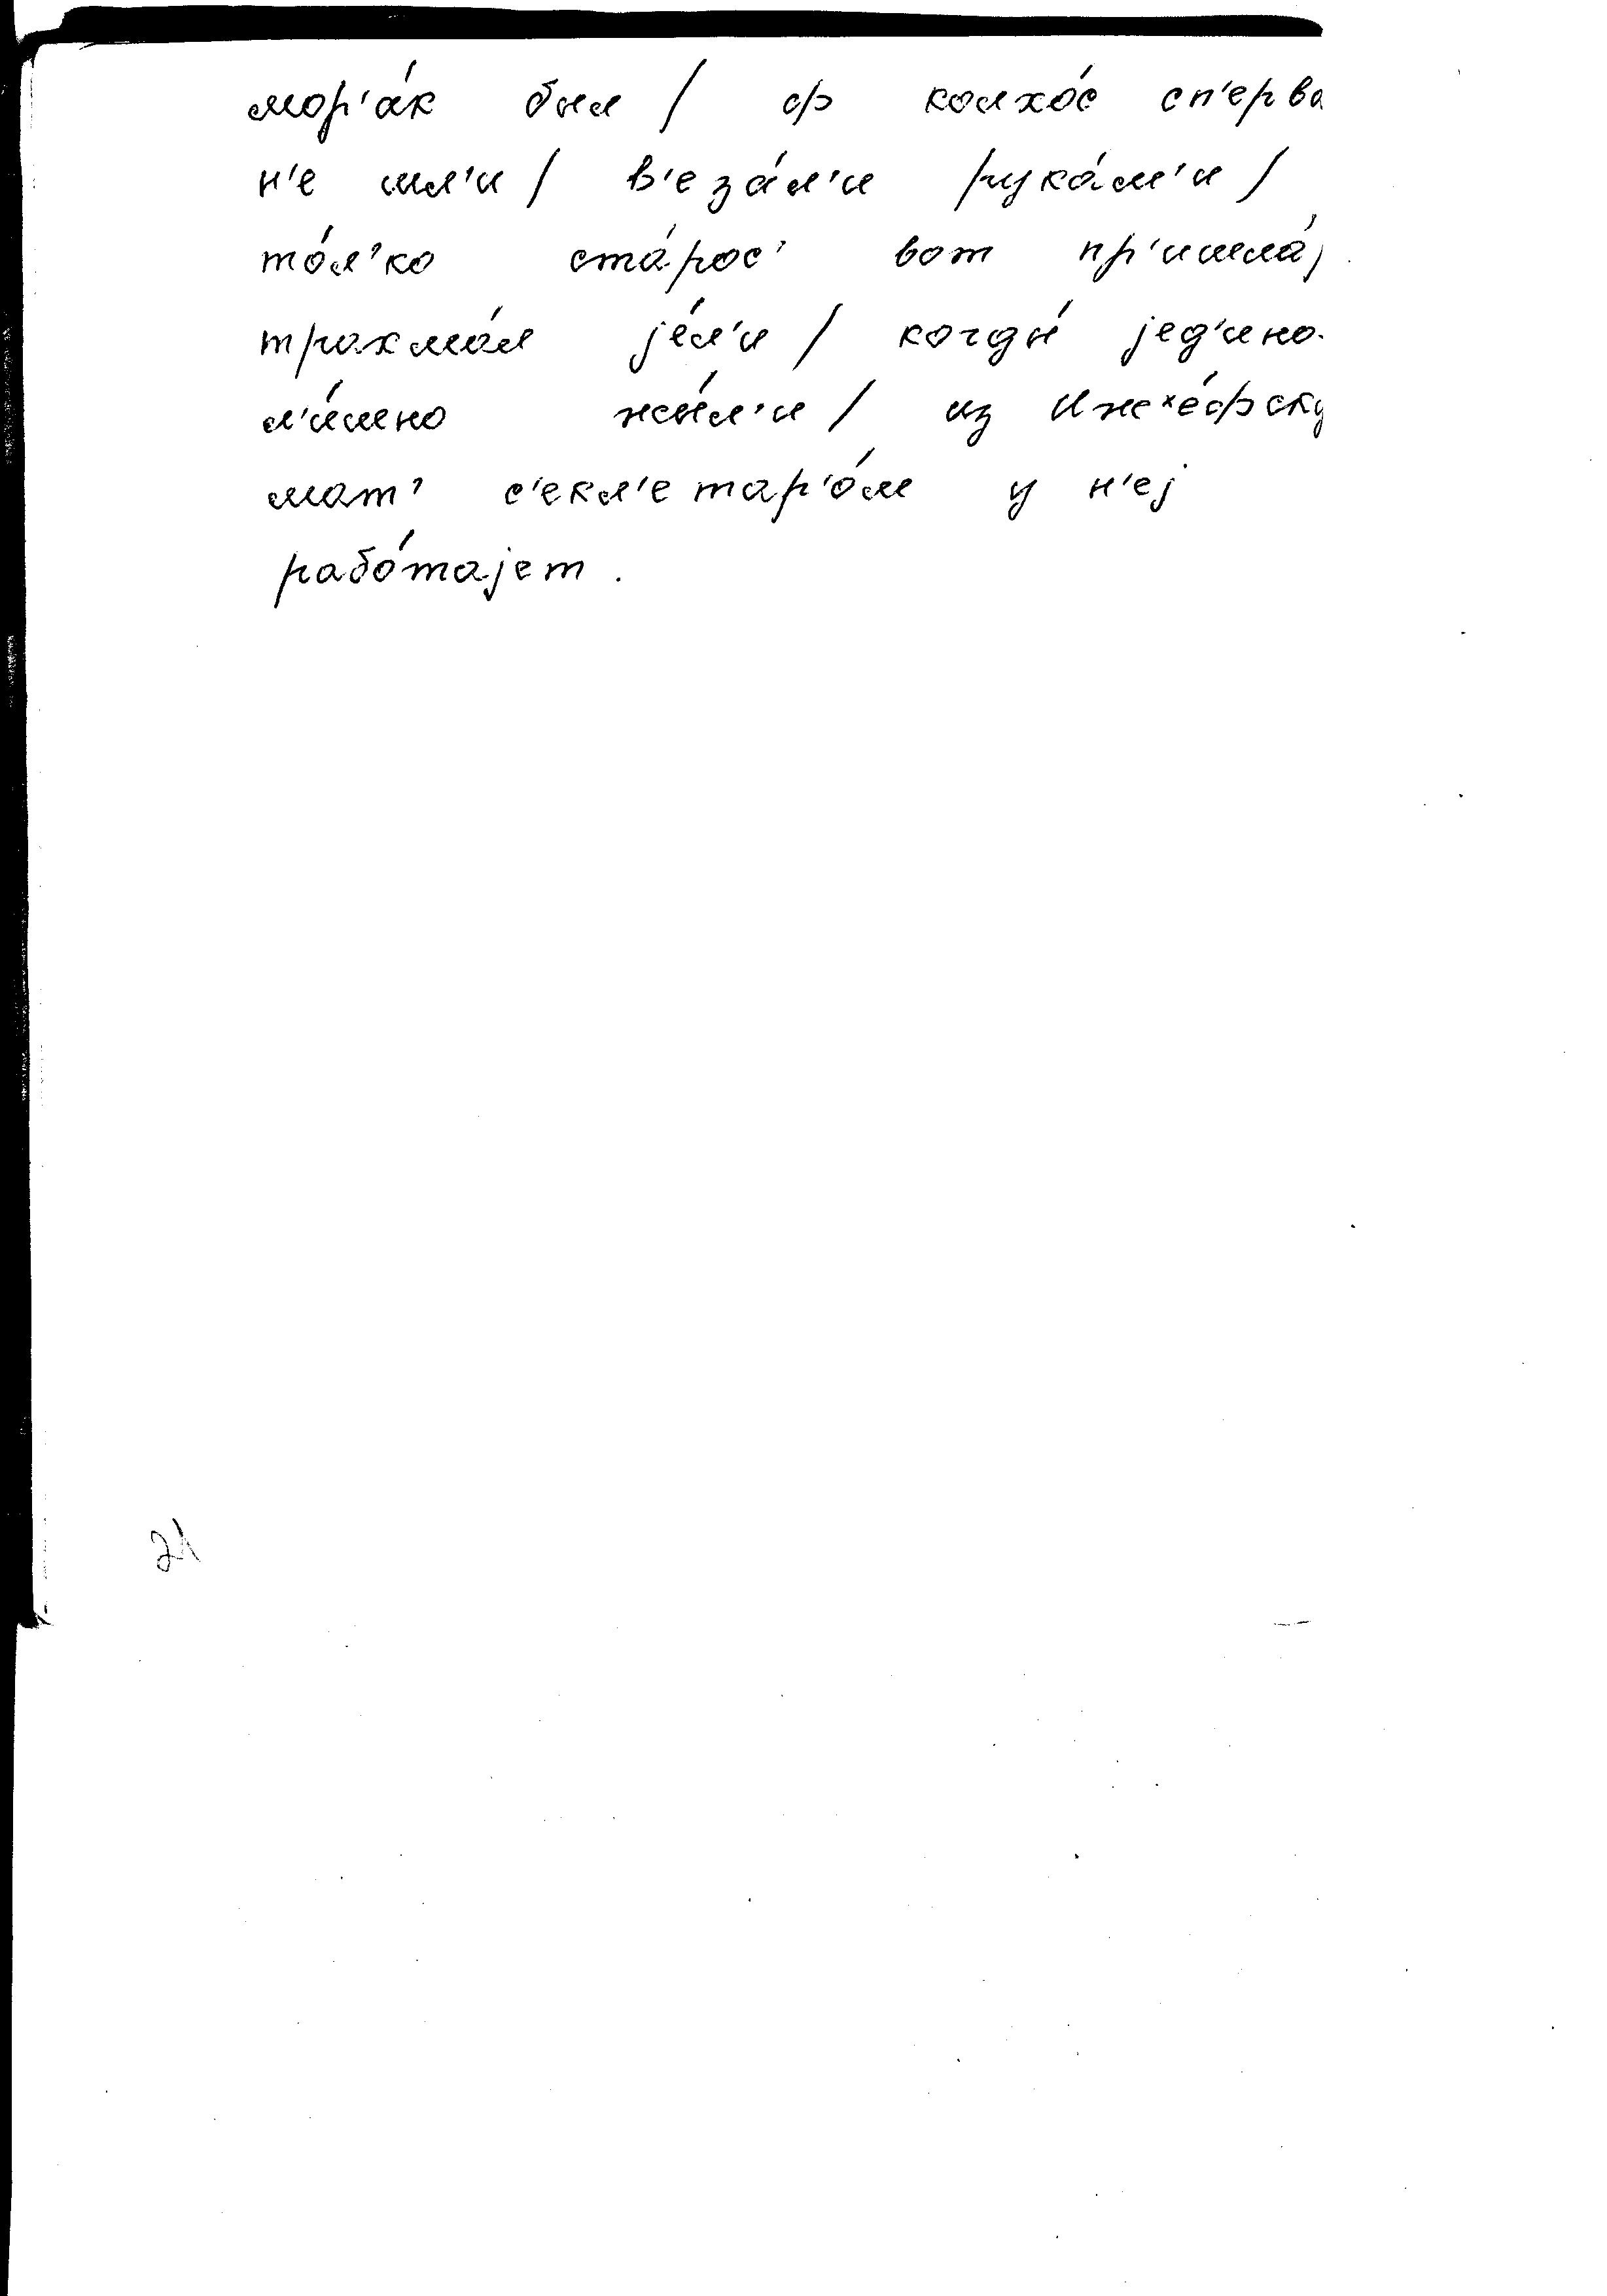 мор'а́к был / ф колхо́с сп'ерва
н'е шл'и / в'еза́л'и рука́м'и /
то́л'ко ста́рос' вот пр'ишла́/
трахма́л је́л'и / когды́ јед'ино-
л'и́шно жы́л'и / из
мат' с'екл'етар'о́м у н'еј
рабо́тајет.
21